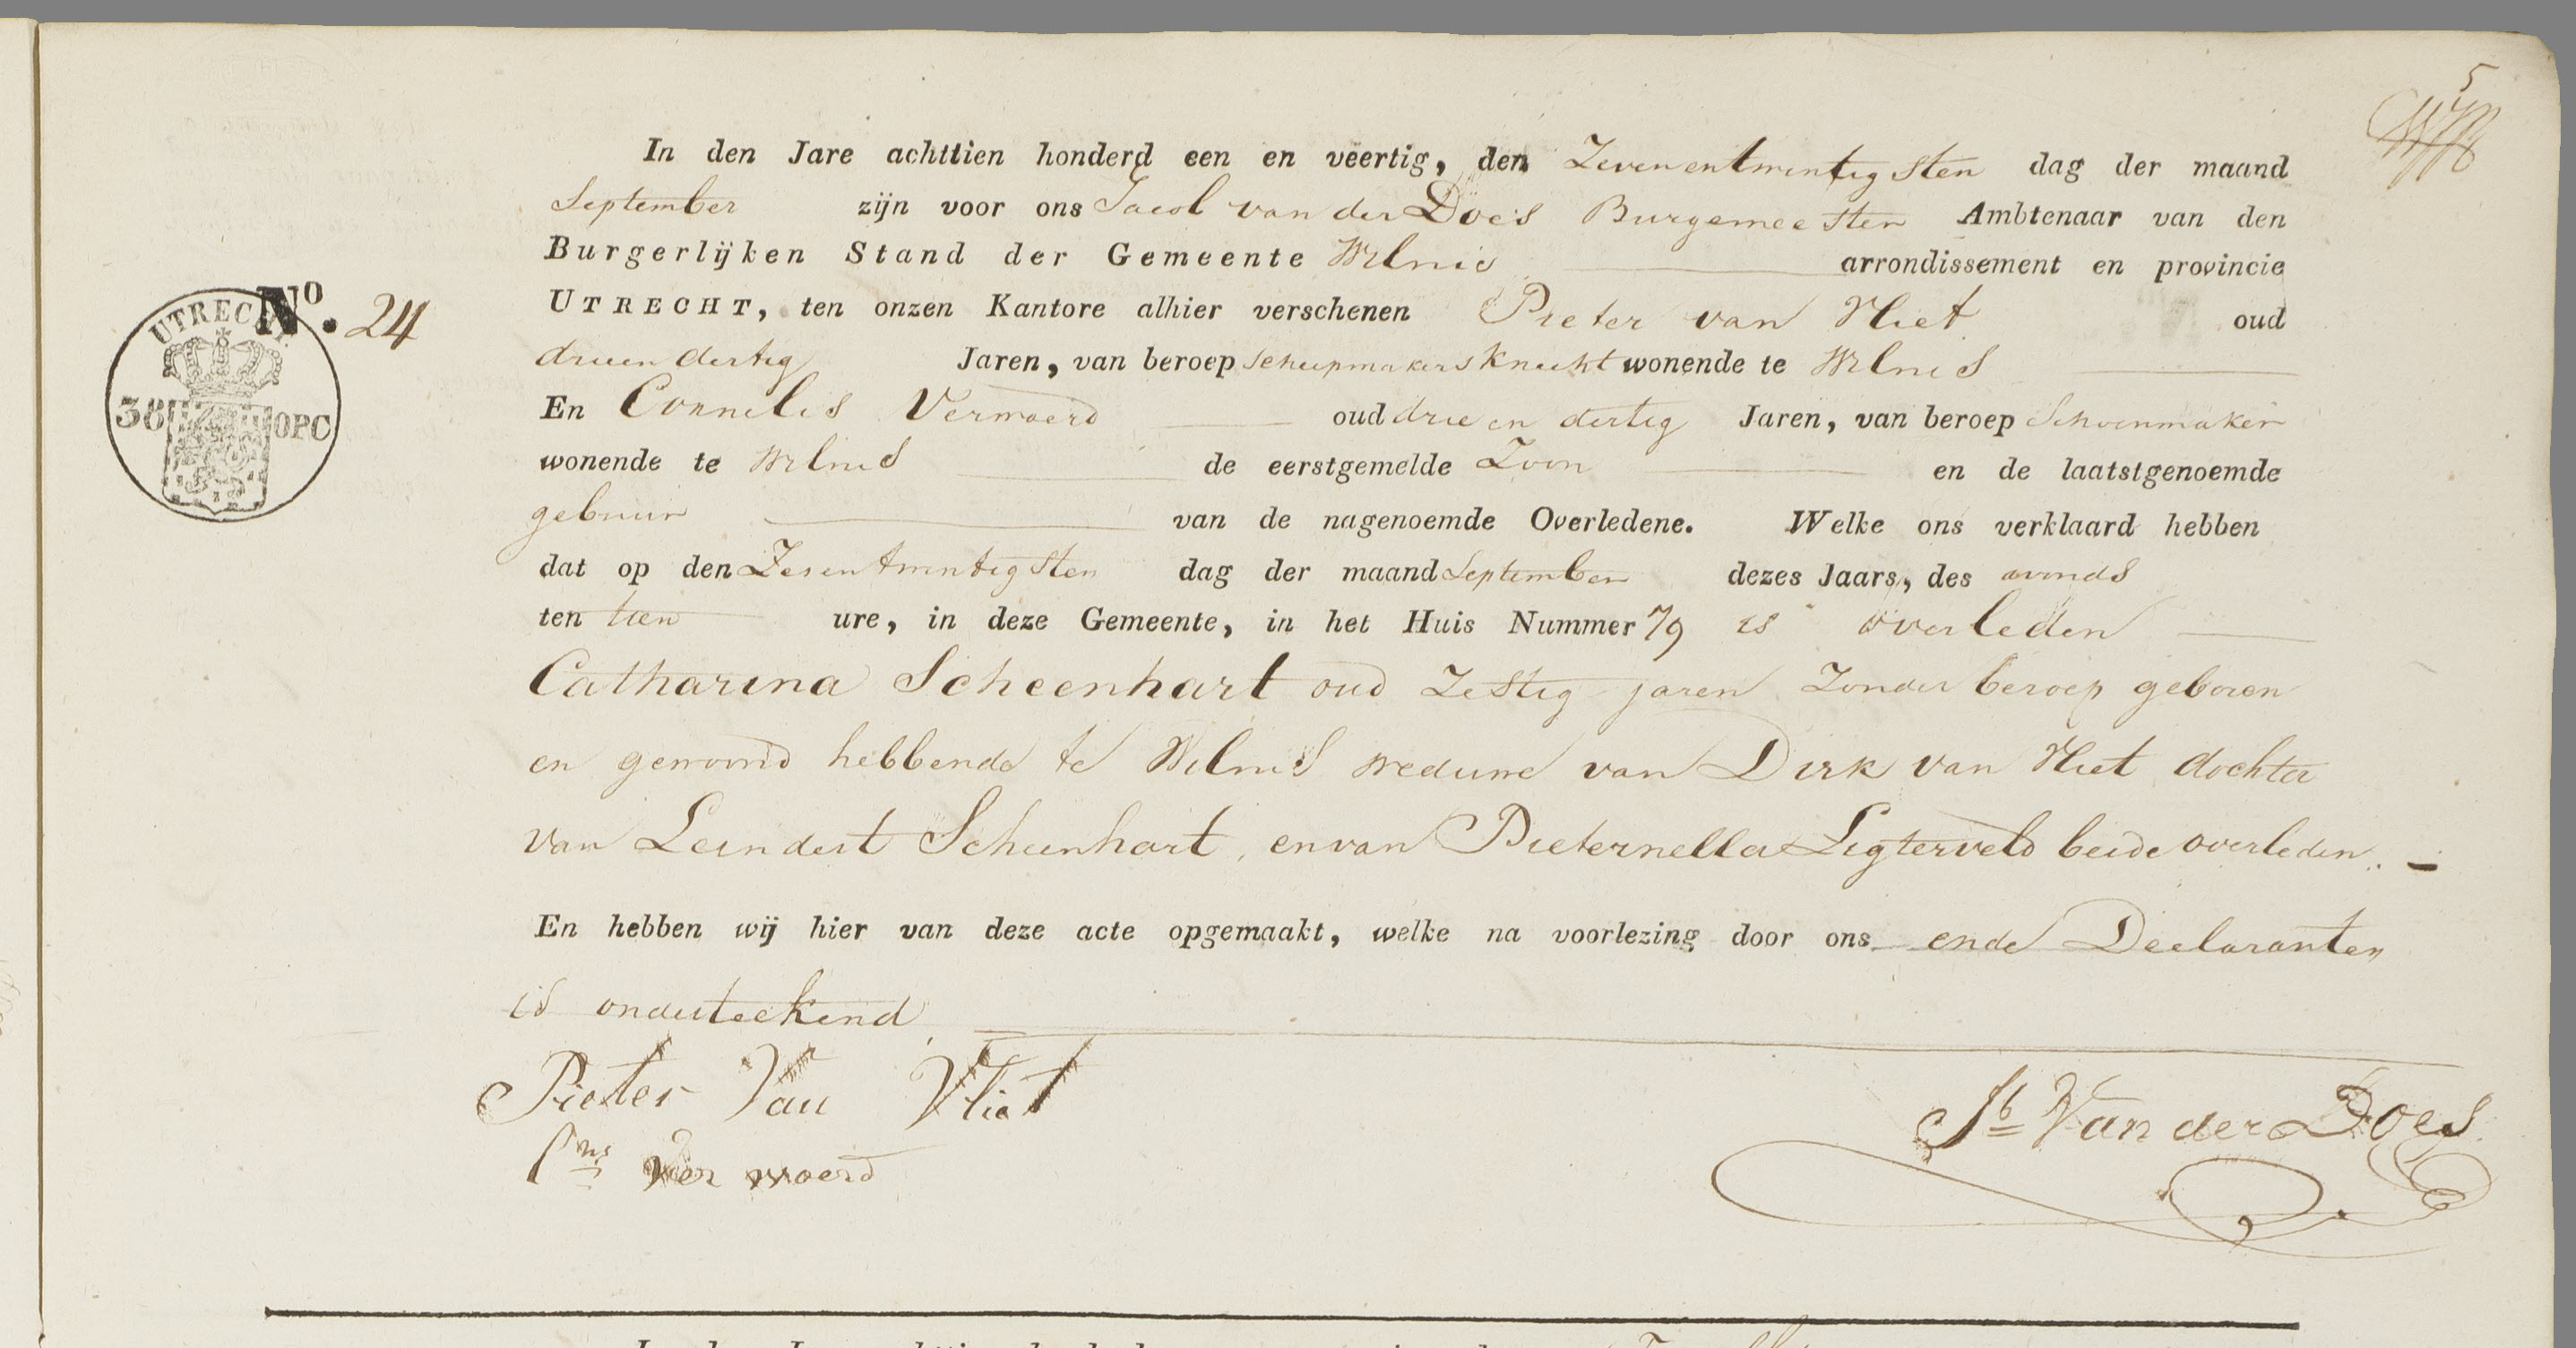 5
In den Jare achttien honderd een en veertig, den Zevenentwintigsten dag der maand
September zijn voor ons Jacob van der Does Burgemeester Ambtenaar van den
Burgerlijken Stand der Gemeente Wilnis arrondissement en provincie
UTRECHT, ten onzen Kantore alhier verschenen Pieter van Vliet oud
drieendertig Jaren, van beroep Scheepmakersknecht wonende te Wilnis
En Cornelis Verwoerd oud drie en dertig Jaren, van beroep Schoenmaker
wonende te Wilnis de eerstgemelde Zoon en de laatstgenoemde
gebuur van de nagenoemde Overledene. Welke ons verklaard hebben
dat op den Zesentwintigsten dag der maand September dezes Jaars, des avonds
ten tien ure, in deze Gemeente, in het Huis Nummer 79 is overleden
Catharina Scheenhart oud Zestig jaren Zonder beroep geboren
en gewoond hebbende te Wilnis weduwe van Dirk van Vliet dochter
van Leendert Scheenhart, en van Pieternella Ligterveld beide overleden. -
En hebben wij hier van deze acte opgemaakt, welke na voorlezing door ons ende Declaranten
is onderteekend
Pieter Van Vliet
Jb Van der Does
Cns ver woerd
No. 24
UTRECHT
38 OPC